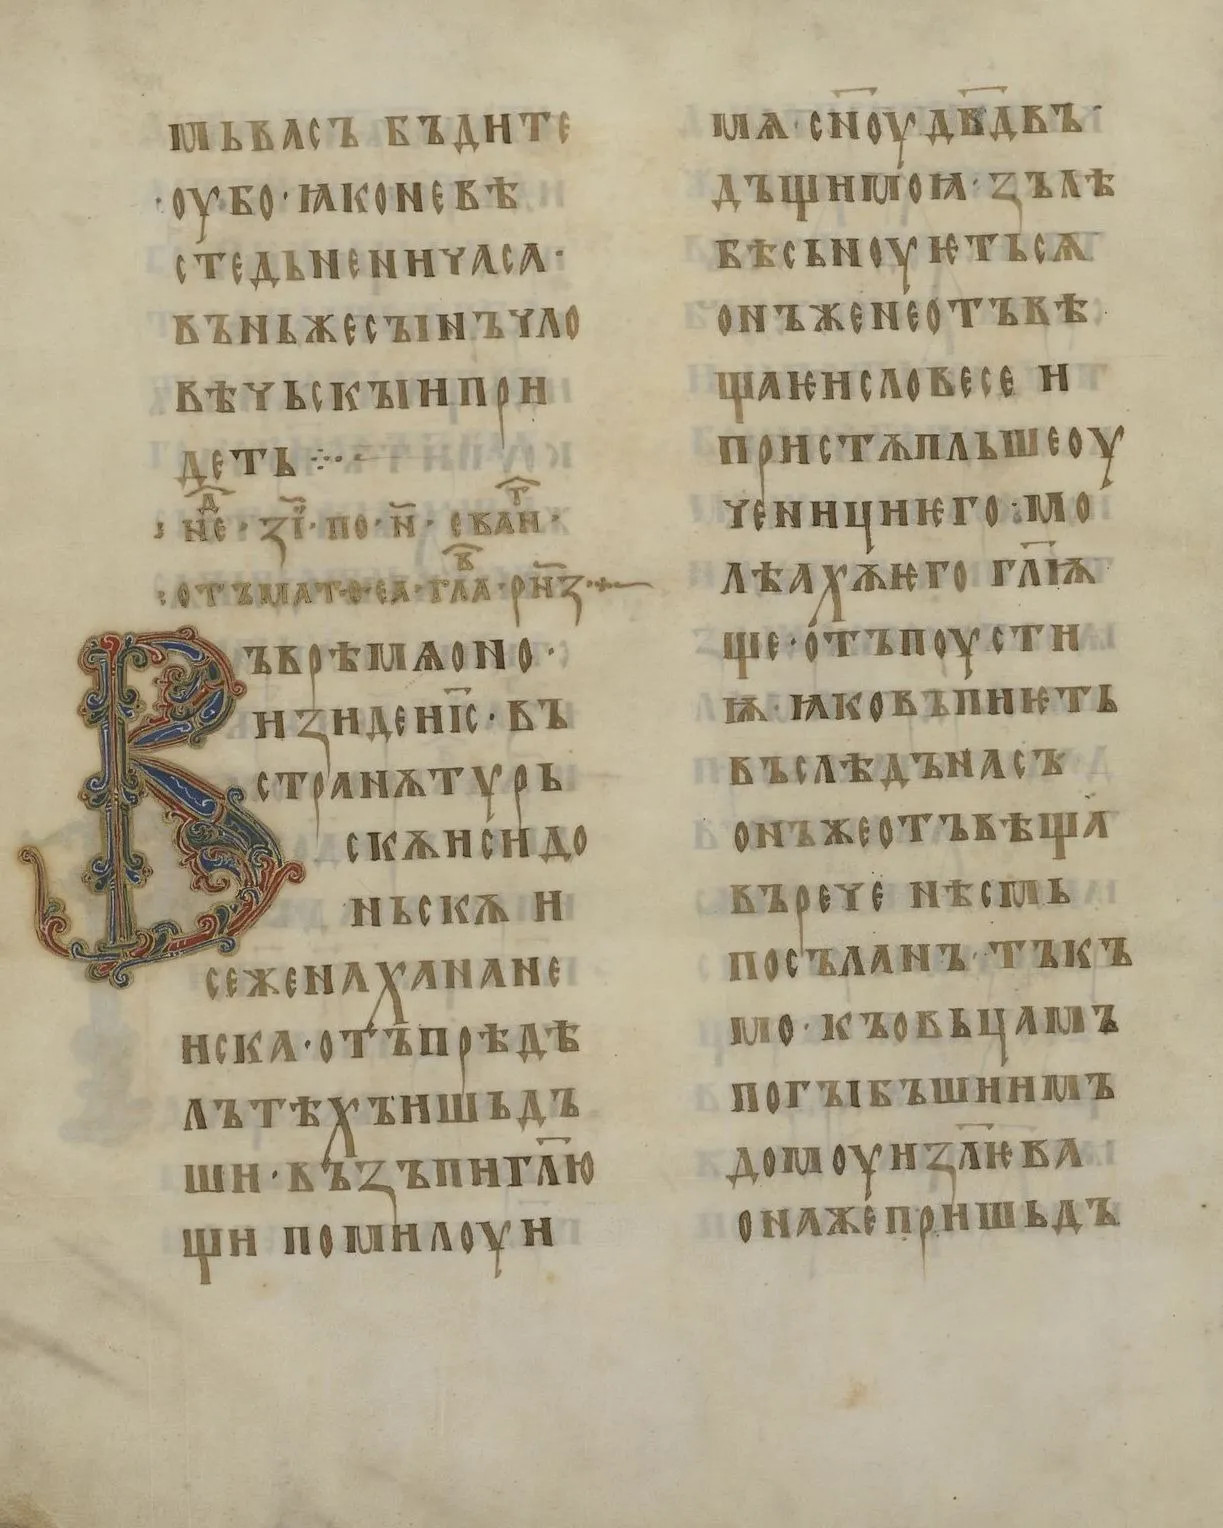 мьвасъ бъдите
·оубо·ꙗконевѣ
стедьненичаса·
въньжесꙑинъчло
вѣчьскꙑипри
деть
не҃·з҃і·по·н҃·еван҃·
отъмат·о·еа·гла·рн҃з
Въврѣмѧоно·
изиденіс҃·въ
странѫтурь
скѫисидо
ньскѫ и
сеженаханане
иска·отъпрѣдѣ
лътѣхъишьдъ
ши·възъпигл҃ю
щи помилоуи
мѧ·сн҃оудв҃двъ·
дъщимоꙗ·зълѣ
бѣсьноуѥтьсѧ
онъженеотъвѣ
щаѥисловесе и
пристѫпльшеоу
ченициѥго·мо
лѣахѫѥго гл҃ѭ
ще·отъпоусти
ѭ·ꙗковъпиѥть
въслѣдънасъ
онъжеотъвѣща
върече нѣсмь
посъланъ·тъкъ
мо·къовьцамъ
погꙑбъшиимъ
домоуизл҃ѥва
онажепришьдъ